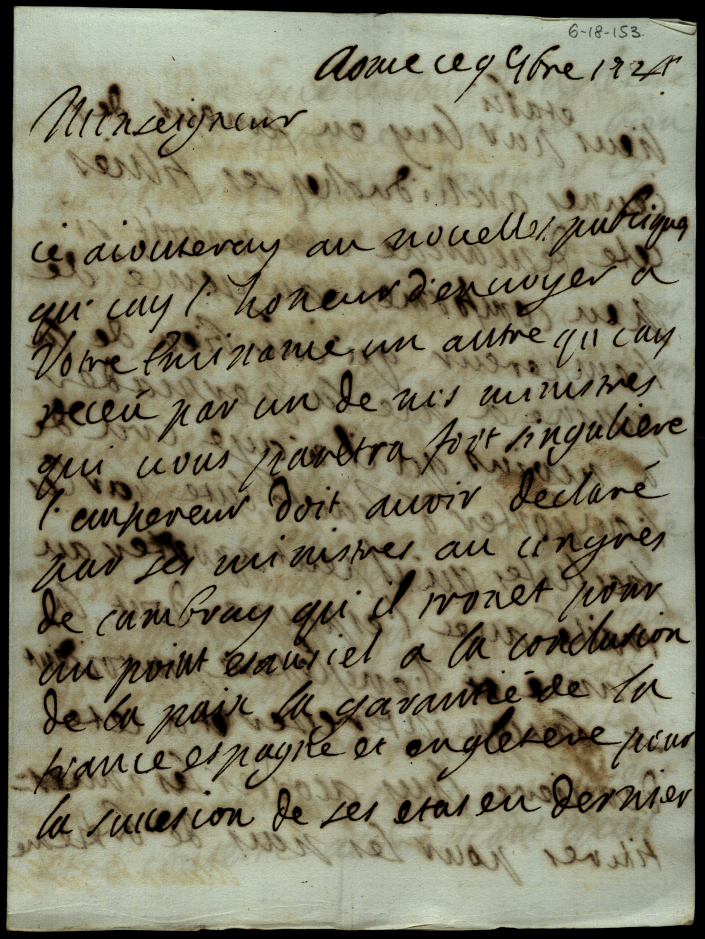 6-18-153
A Rome ce 9 9bre 1724
Monseigneur
ie aiouteray au nouelles publiques
qui iay l'honeur d'enuoyer a
Votre Eminance un autre qu iay
receu par un de mes ministres
qui uous paretra fort singuliere
l'empereur doit auoir declaré
par ses ministres au congres
de cambray qu il trouet pour
un point esansiel a la conclusion
de la paix la garantie de la
france espagne et engletere pour
la sucesion de ses etas en dernier